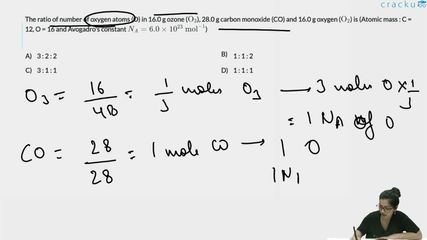 cracku
The ratio of number of oxygen atoms (O) in 16.0 g ozone (O₃), 28.0 g carbon monoxide (CO) and 16.0 g oxygen (O₂) is (Atomic mass : C =
12, O = 16 and Avogadro's constant N_A = 6.0 × 10²³ mol⁻¹)
A) 3 : 2 : 2
B) 1 : 1 : 2
C) 3 : 1 : 1
D) 1 : 1 : 1
O₃ = 16/48 = 1/3 moles O₃ → 3 moles O × 1/3
= 1 N_A of O
CO = 28/28 = 1 mole CO → 1 O
1 N